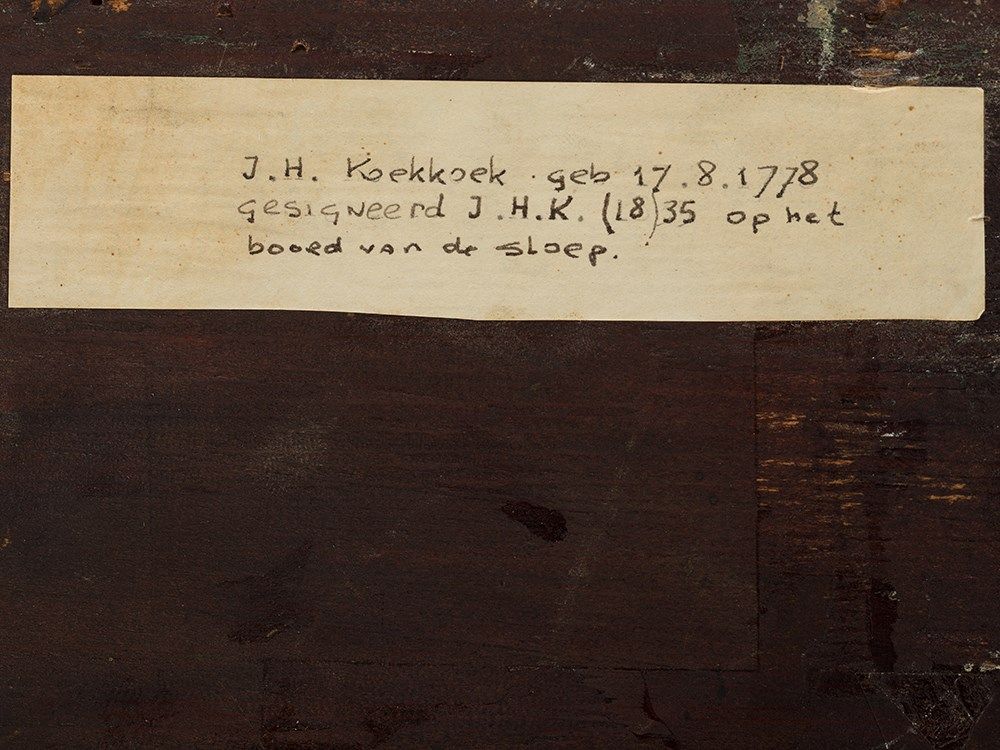 J.H. Koekkoek geb 17.8.1778
gesigneerd J.H.K. (18)35 op het
boord van de sloep.